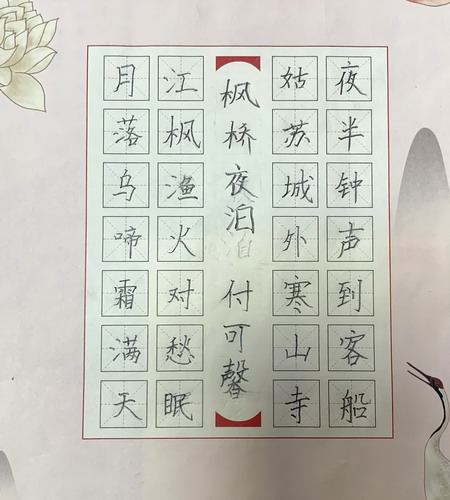 月落乌啼霜满天
江枫渔火对愁眠
枫桥夜泊 付可馨
姑苏城外寒山寺
夜半钟声到客船